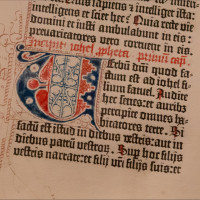 Quis sapiens et intelliget ista
intelligens et sciet hec? Quia recte vie
domini et iusti ambulabunt in eis:
prevaricatores vero corruent in eis.
Incipit iohel ꝓpheta
Verbū dn̄i quod fac-
tum est ad iohel fi-
lium fatuel. Audite
hoc senes: et auribꝫ
percipite omnes ha-
bitatores terre. Si
factū est istud in diebus vestris: aut in
diebus patrū vestroꝝ. Sup̄ hoc filiis
vestris narrate: et filii vr̄i filiis suis: et